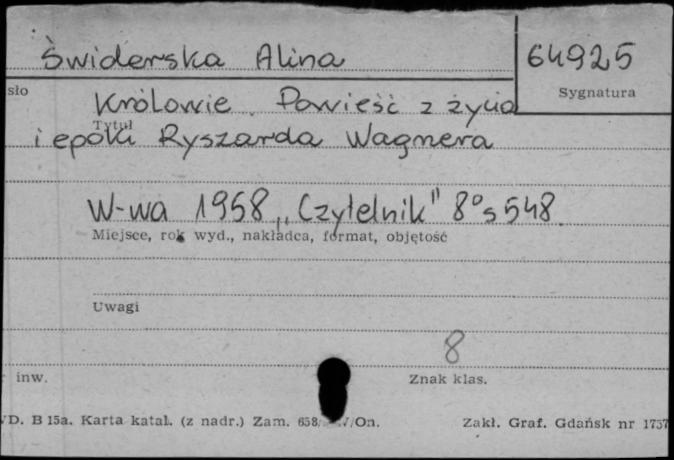 Świderska Alina 64925
sło Sygnatura
Królowie. Powieść z życia
Tytuł
i epoki Ryszarda Wagnera
W-wa 1958 „Czytelnik" 8° s 548.
Miejsce, rok wyd., nakładca, format, objętość
Uwagi
8
inw. Znak klas.
D. B 15a. Karta katal. (z nadr.) Zam. /On. Zakł. Graf. Gdańsk nr 1757